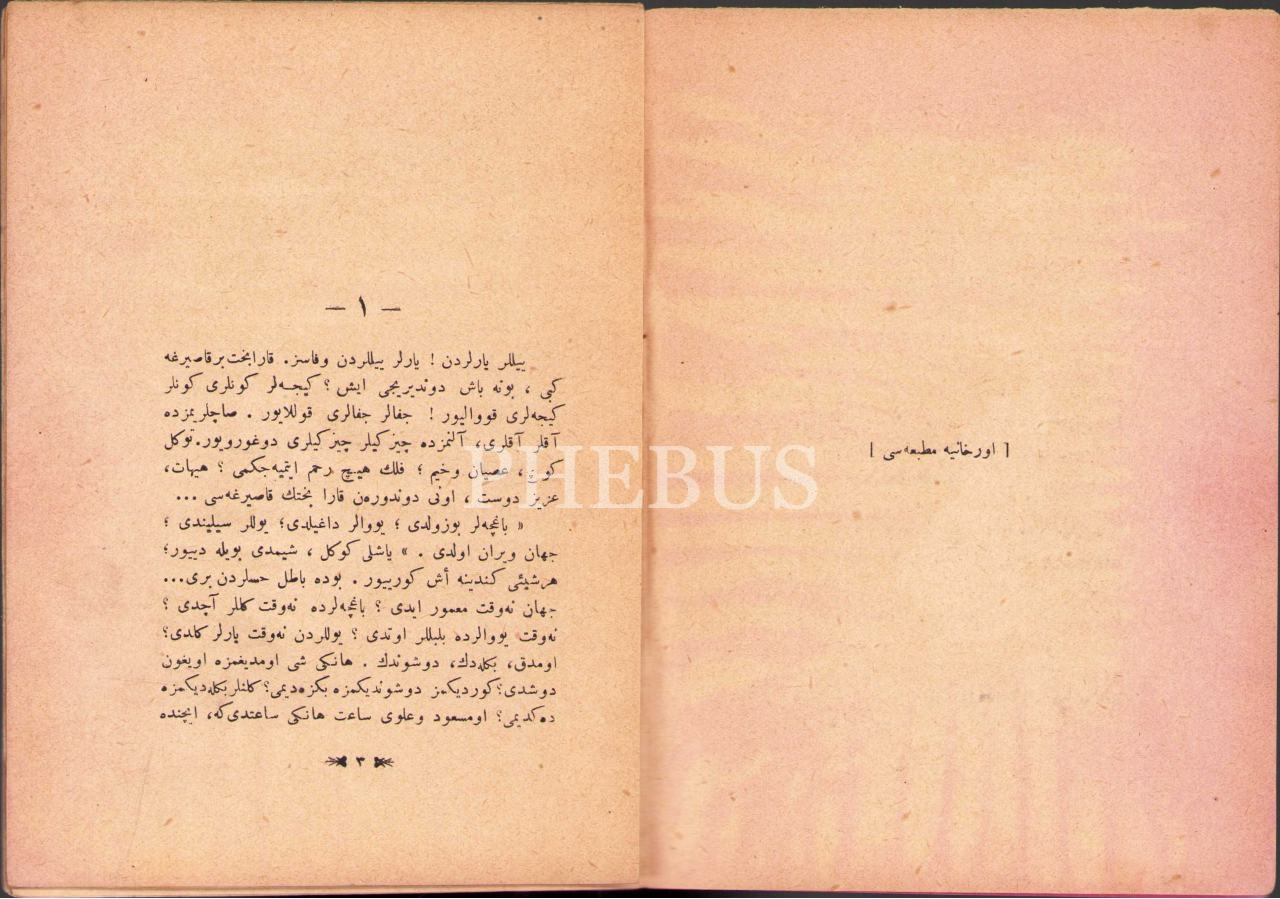 [ اورخانيه مطبعه‌سى ]
— ١ —
ييللر يارلردن ! يارلر ييللردن وفاسز. قارابخت برقاصيرغه
كبى ، بونه باش دونديريجى ايش ؟ كيجه‌لر كونلرى كونلر
كيجه‌لرى قوواليور ! جفالر جفالرى قوللايور . صاچلريمزده
آقلر آقلرى، آلنمزده چيزكيلر چيزكيلرى دوغورويور. توكل
كوچ، عصيان وخيم ؛ فلك هيچ رحم ايتميه‌جكمى ؟ هيهات،
عزيز دوست ، اونى دوندوره‌ن قارا بختك قاصيرغه‌سى ...
« باغچه‌لر بوزولدى ؛ يووالر داغيلدى؛ يوللر سيليندى ؛
جهان ويران اولدى . » ياشلى كوكل ، شيمدى بويله دييور؛
هرشيئى كندينه أش كورييور . بوده باطل حسلردن برى...
جهان نه‌وقت معمور ايدى ؟ باغچه‌لرده نه‌وقت كللر آچدى ؟
نه‌وقت يووالرده بلبللر اوتدى ؟ يوللردن نه‌وقت يارلر كلدى؟
اومدق، بكله‌دك، دوشوندك . هانكى شى اومديغمزه اويغون
دوشدى؟ كورديكمز دوشونديكمزه بكزه‌ديمى؟ كلنلر بكله‌ديكمزه
ده‌كديمى؟ اومسعود وعلوى ساعت هانكى ساعتدى‌كه، ايچنده
٣
PHEBUS